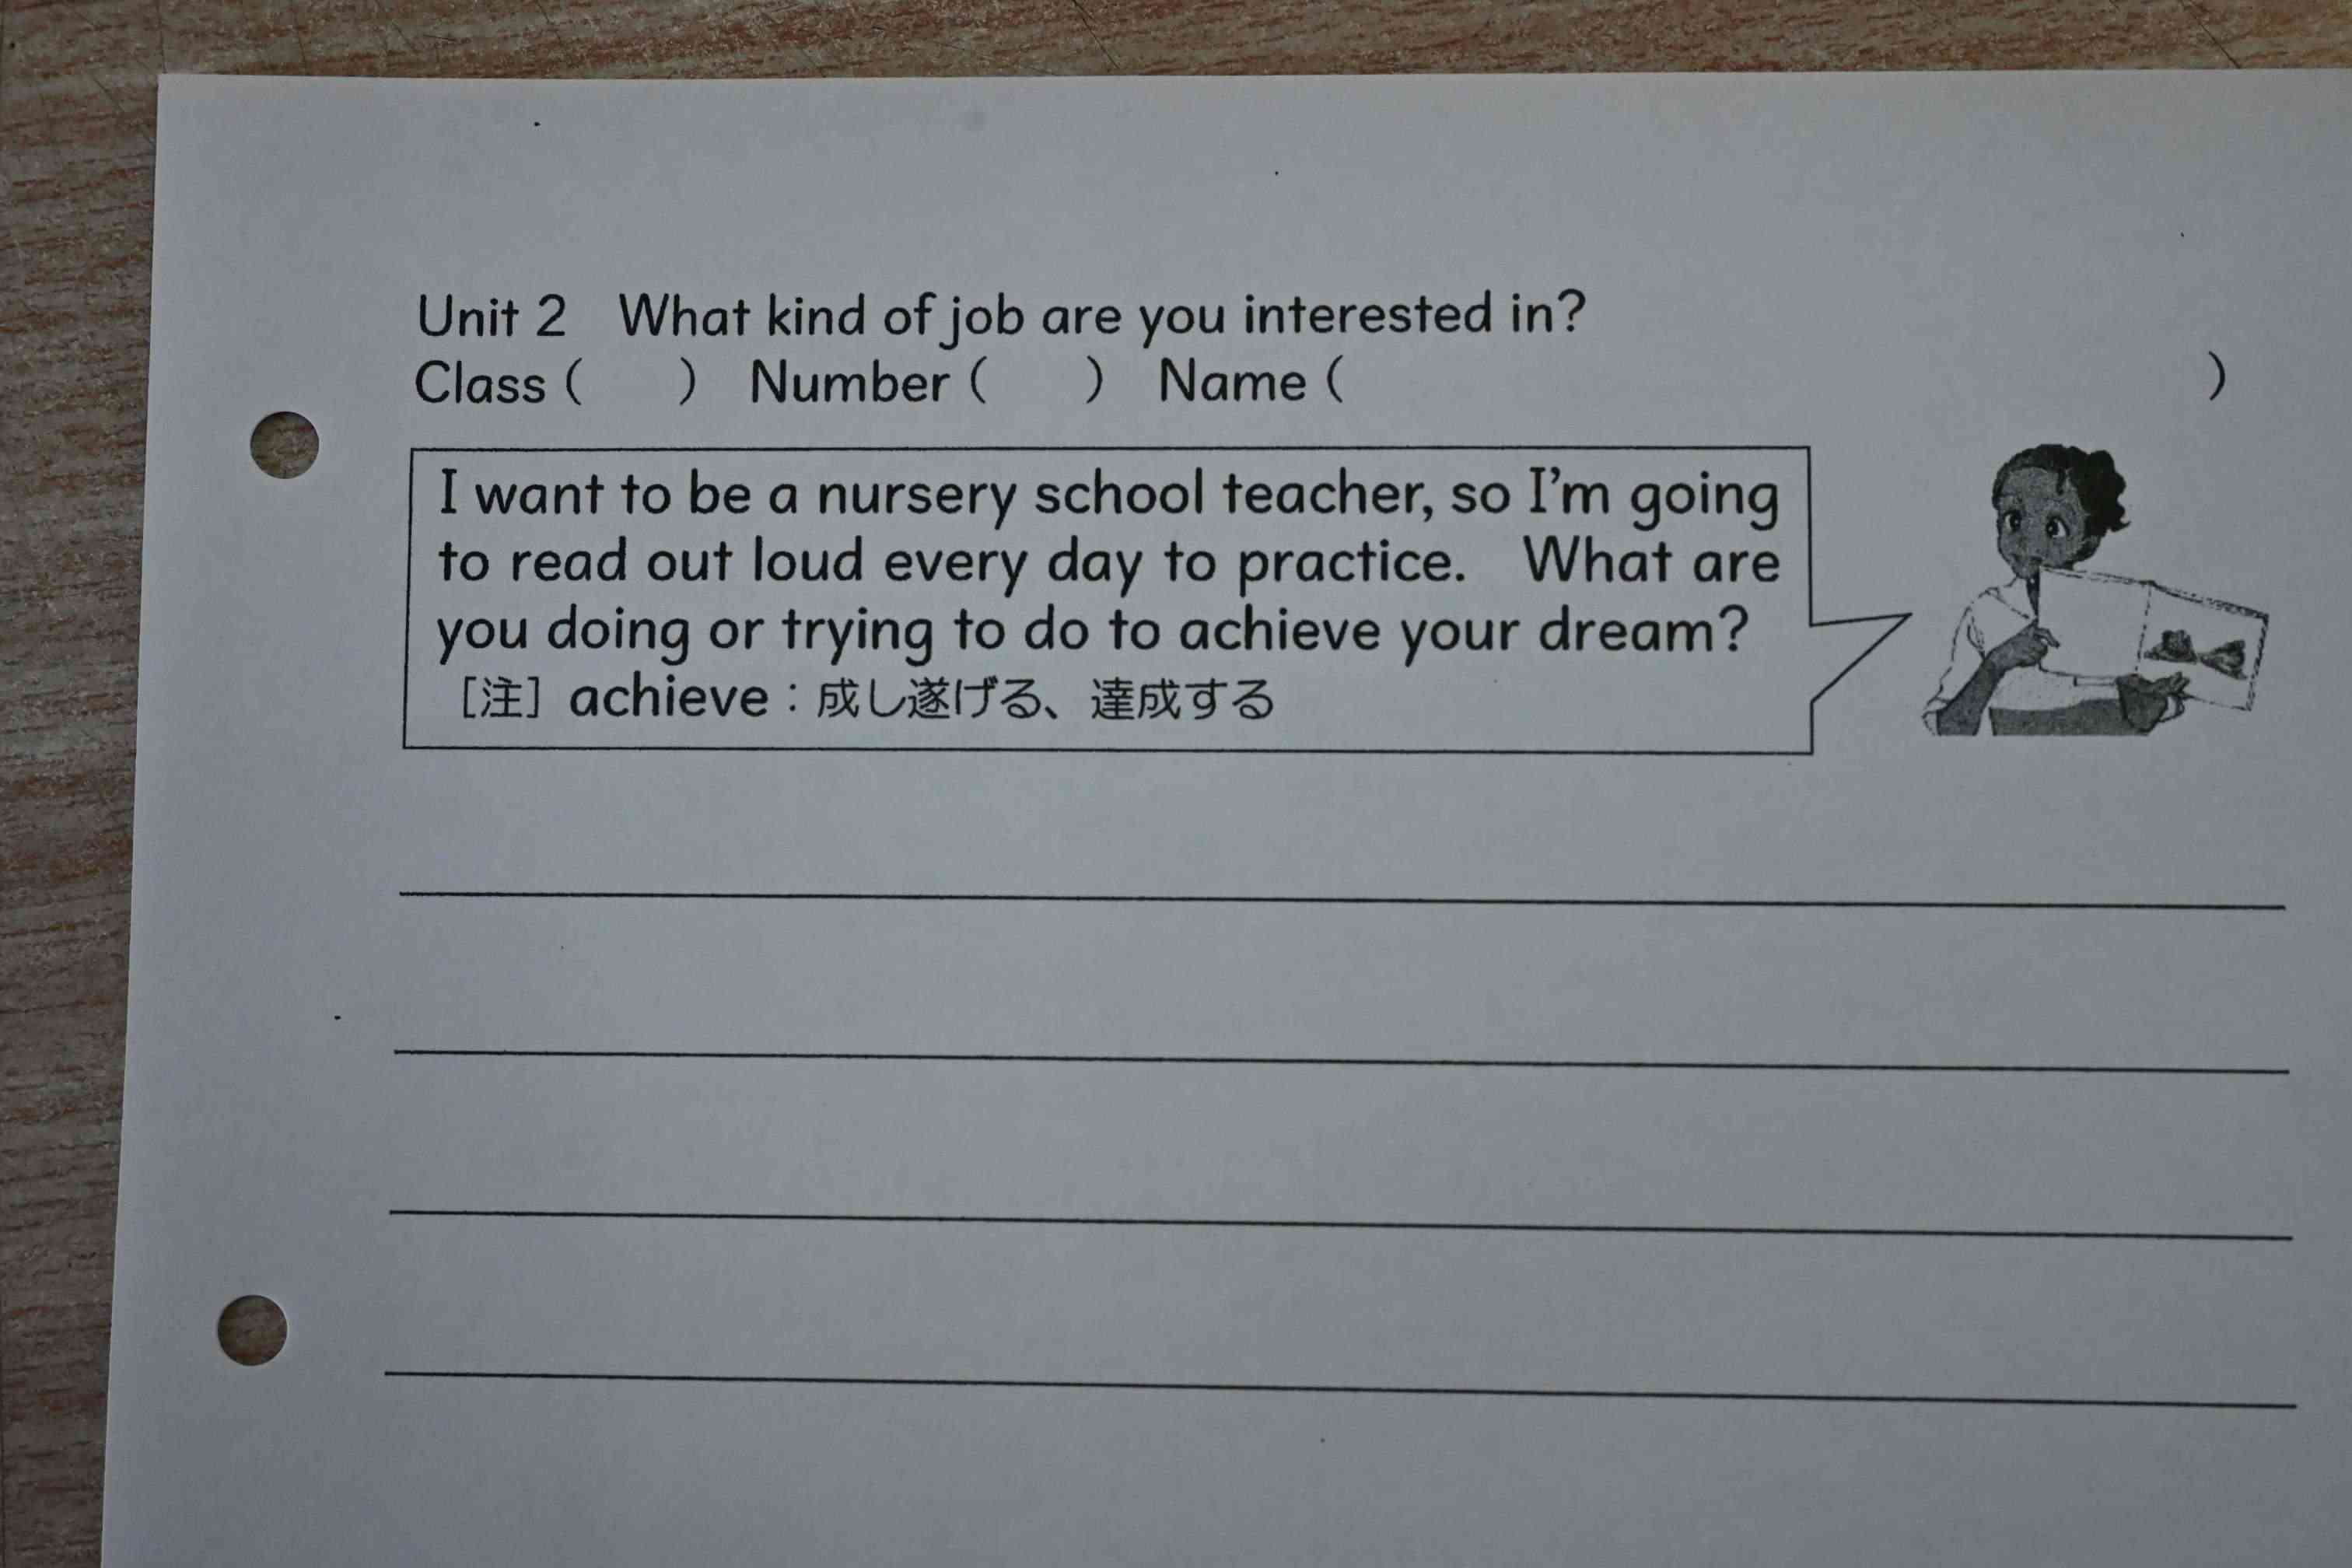 Unit 2　What kind of job are you interested in?
Class (　　) Number (　　) Name (　　　　　　　　)
I want to be a nursery school teacher, so I'm going
to read out loud every day to practice.　What are
you doing or trying to do to achieve your dream?
［注］achieve：成し遂げる、達成する